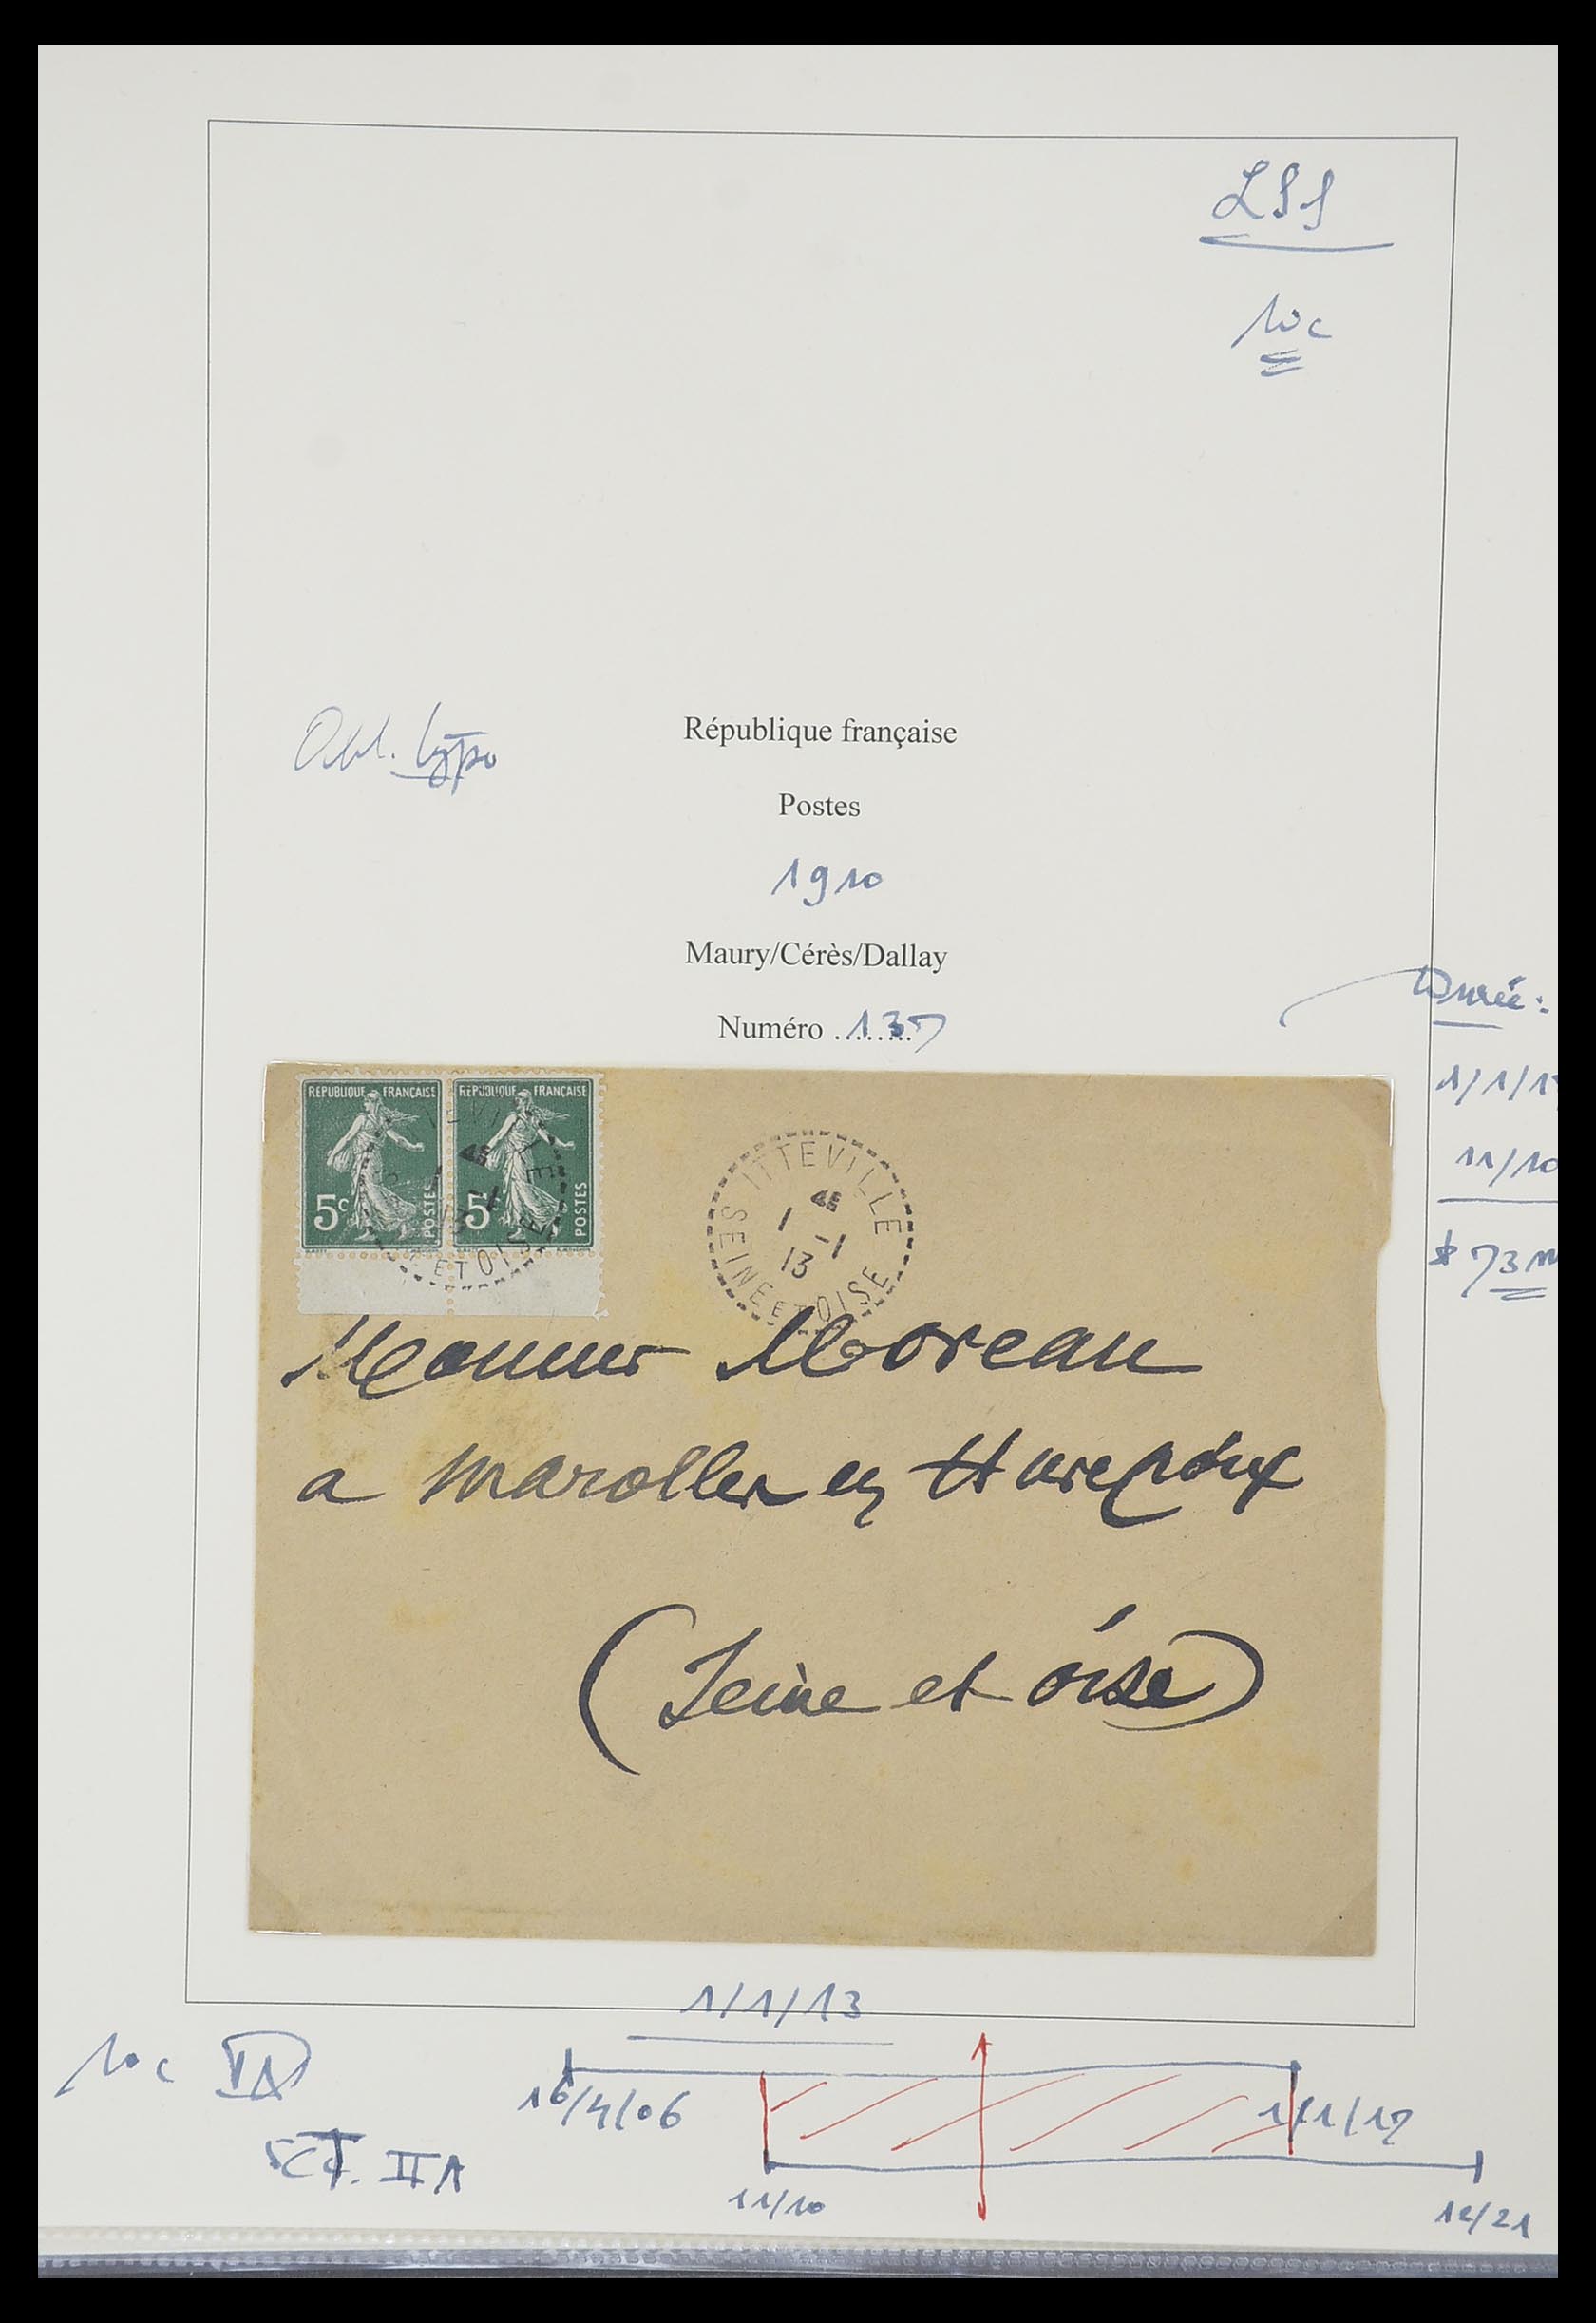 LSS
10c
Obl. typo
République française
Postes
1910
Maury/Cérès/Dallay
Numéro ........ 137
Durée :
1/1/1
11/10
73 m
REPUBLIQUE FRANÇAISE
5c
POSTES
REPUBLIQUE FRANÇAISE
5
POSTES
ET OISE
ITTEVILLE
4E
1 -1
13
SEINE ET OISE
Monsieur Moreau
a Marolles en Hurepoix
(Seine et oise)
1/1/13
10c
16/4/06
1/1/17
5c T. IIA
11/10
12/21